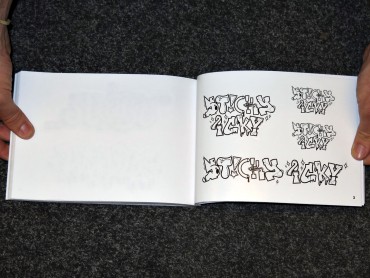 STICKY
ICKY
STICKY
ICKY
STICKY
ICKY
STICKY ICKY
3